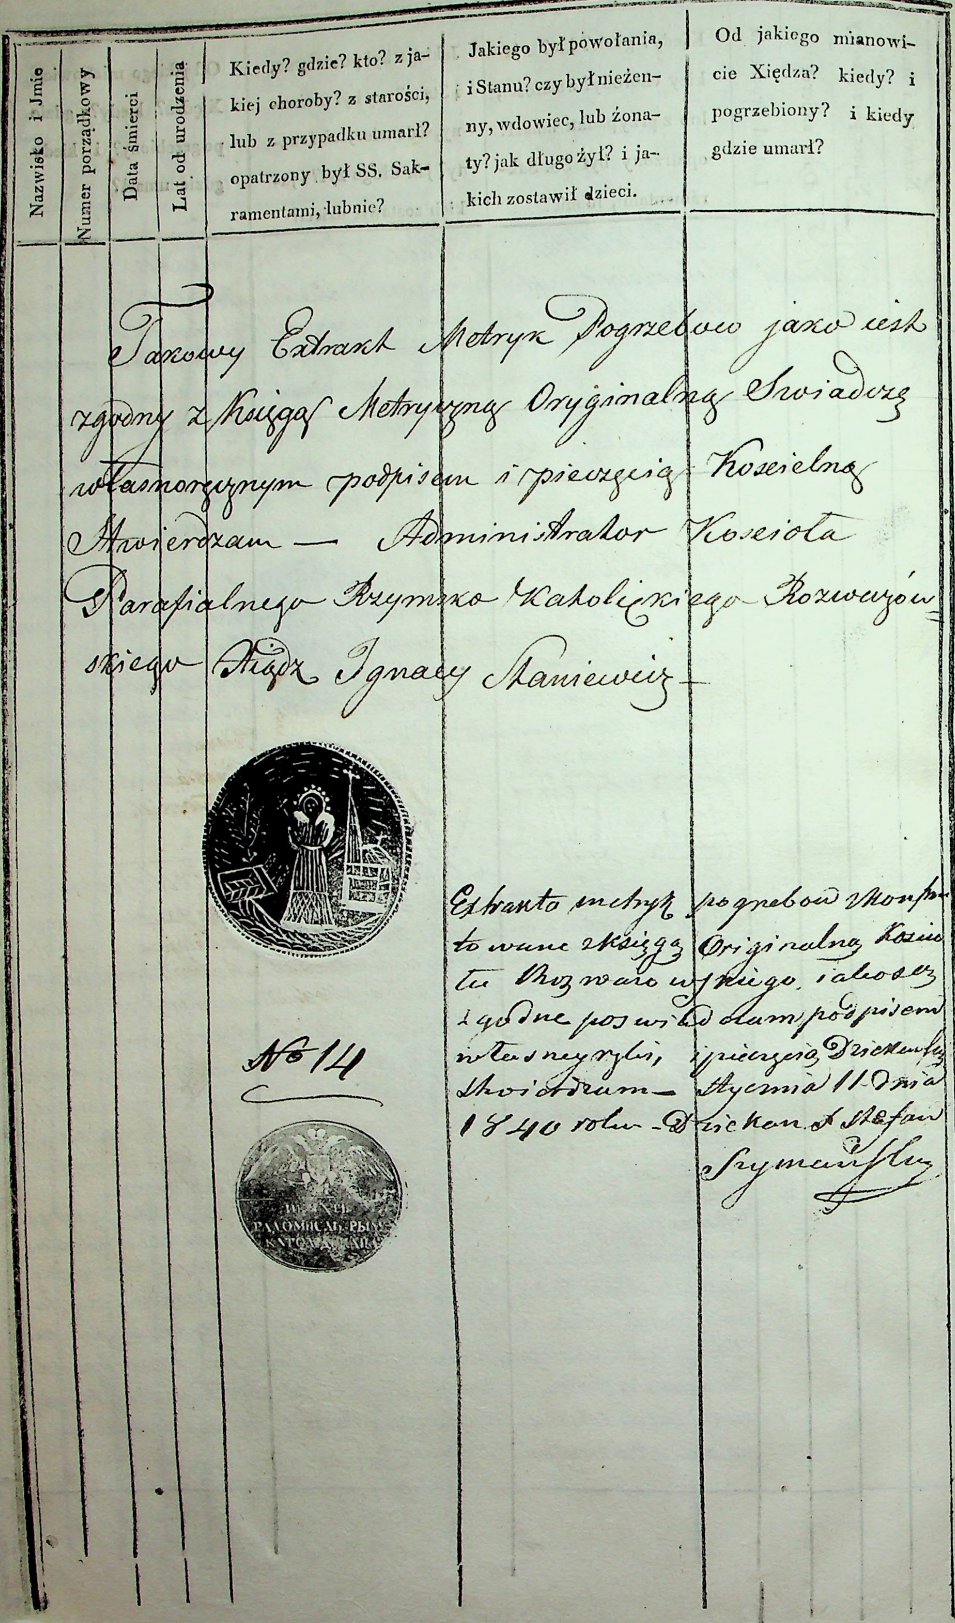 Nazwisko i Jmie
Numer porządkowy
Data śmierci
Lat od urodzenia
Kiedy? gdzie? kto? z ja-
kiej choroby? z starości,
lub z przypadku umarł?
opatrzony był SS. Sak-
ramentami, lub nie?
Jakiego był powołania,
i Stanu? czy był nieżen-
ny, wdowiec, lub żona-
ty? jak długo żył? i ja-
kich zostawił dzieci.
Od jakiego mianowi-
cie Xiędza? kiedy? i
pogrzebiony? i kiedy
gdzie umarł?
Takowy Extrakt Metryk Pogrzebow jako iest
zgodny z Księgą Metryczną Oryginalną Swiadczę
własnoręcznym podpisem i pieczęcią Koscielną
Stwierdzam — Administrator Koscioła
Parafialnego Rzymsko Katolickiego Rozwazów=
skiego Xiądz Ignacy Staniewicz —
Extrakta metryk pogrzebow
towane z księgą Originalną Koscio
ła Rozwazowskiego, iako są
zgodne poswiadczam podpisem
własney ręki, i pieczęcią
stwierdzam — stycznia 11 dnia
1840 roku – Dziekan X Stefan
Szymański
No 14
РАДОМИСЛЬ: РЫМ